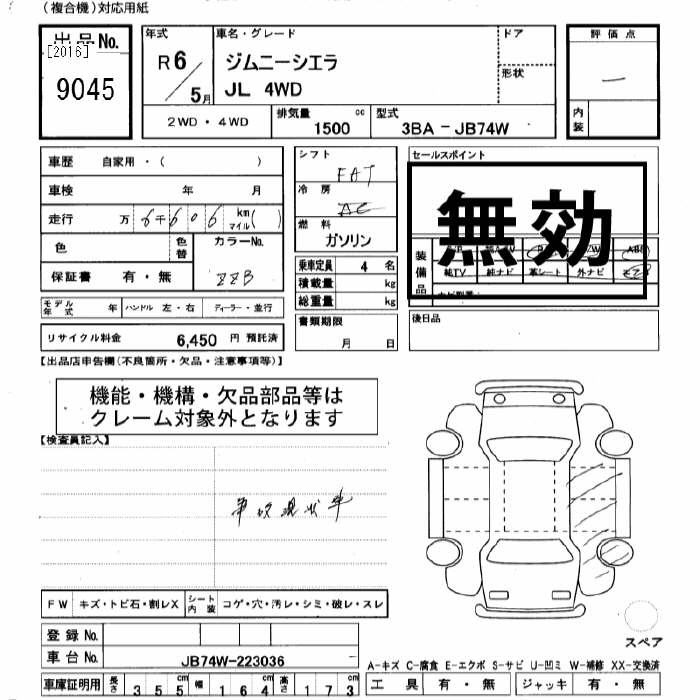 (複合機)対応用紙
出品No.
[2016]
9045
年式
R 6/5月
車名・グレード
ジムニーシエラ
JL 4WD
ドア
形状
評価点
内装
2WD・4WD
排気量
1500 cc
型式
3BA - JB74W
車歴 自家用・( )
車検 年 月
走行 万 6千606 km マイル( )
色
色替
カラーNo.
ZZB
保証書 有・無
モデル年式 年 ハンドル 左・右 ディーラー・並行
リサイクル料金 6,450 円 預託済
シフト
FAT
冷房
AC
燃料
ガソリン
乗車定員 4 名
積載量 kg
総重量 kg
書類期限
月 日
セールスポイント
無効
装備品
純TV 純ナビ 革シート 外ナビ
後日品
【出品店申告欄(不良箇所・欠品・注意事項等)】
機能・機構・欠品部品等は
クレーム対象外となります
【検査員記入】
事故現状車
FW キズ・トビ石・割レX シート内装 コゲ・穴・汚レ・シミ・破レ・スレ
登録No.
車台No. JB74W-223036
車庫証明用 長さ 355 幅 164 高さ 173
スペア
A-キズ C-腐食 E-エクボ S-サビ U-凹ミ W-補修 XX-交換済
工具 有・無 ジャッキ 有・無